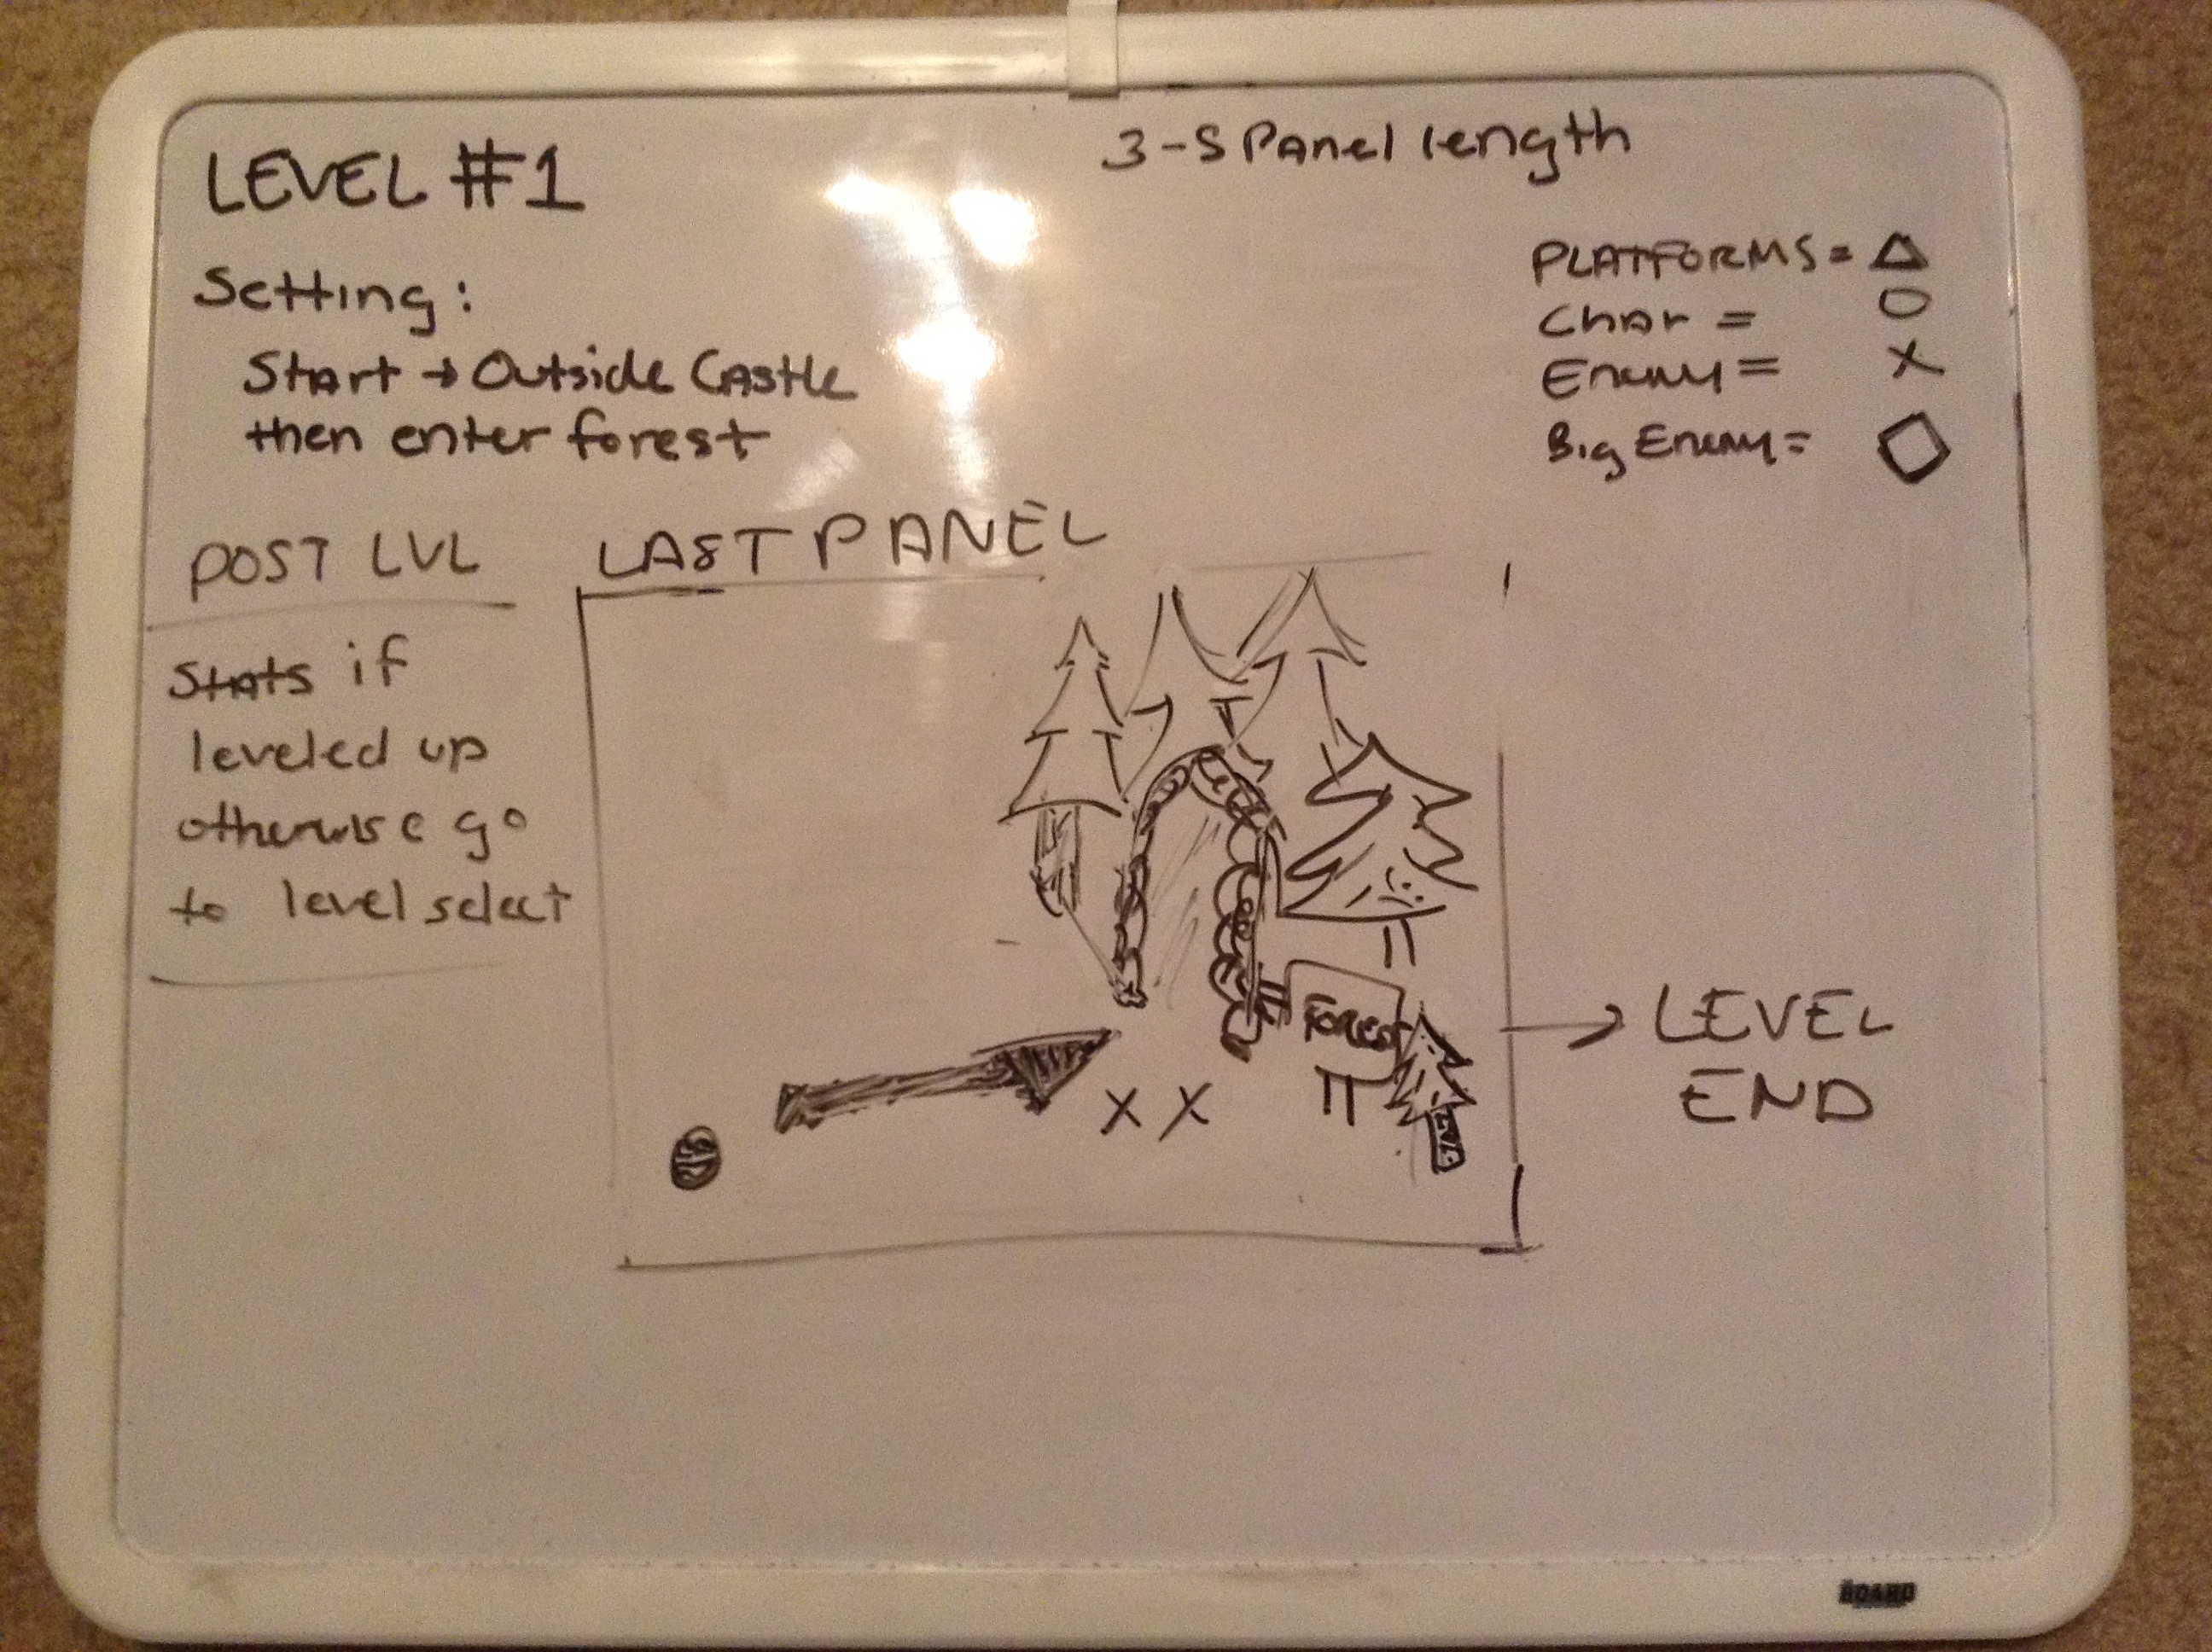 LEVEL #1
3-5 Panel length
Setting:
Start → Outside Castle
then enter forest
PLATFORMS = △
Char = O
Enemy = X
Big Enemy = ◇
POST LVL
Stats if
leveled up
otherwise go
to level select
LAST PANEL
FOREST
X X
→ LEVEL
END
BOARD